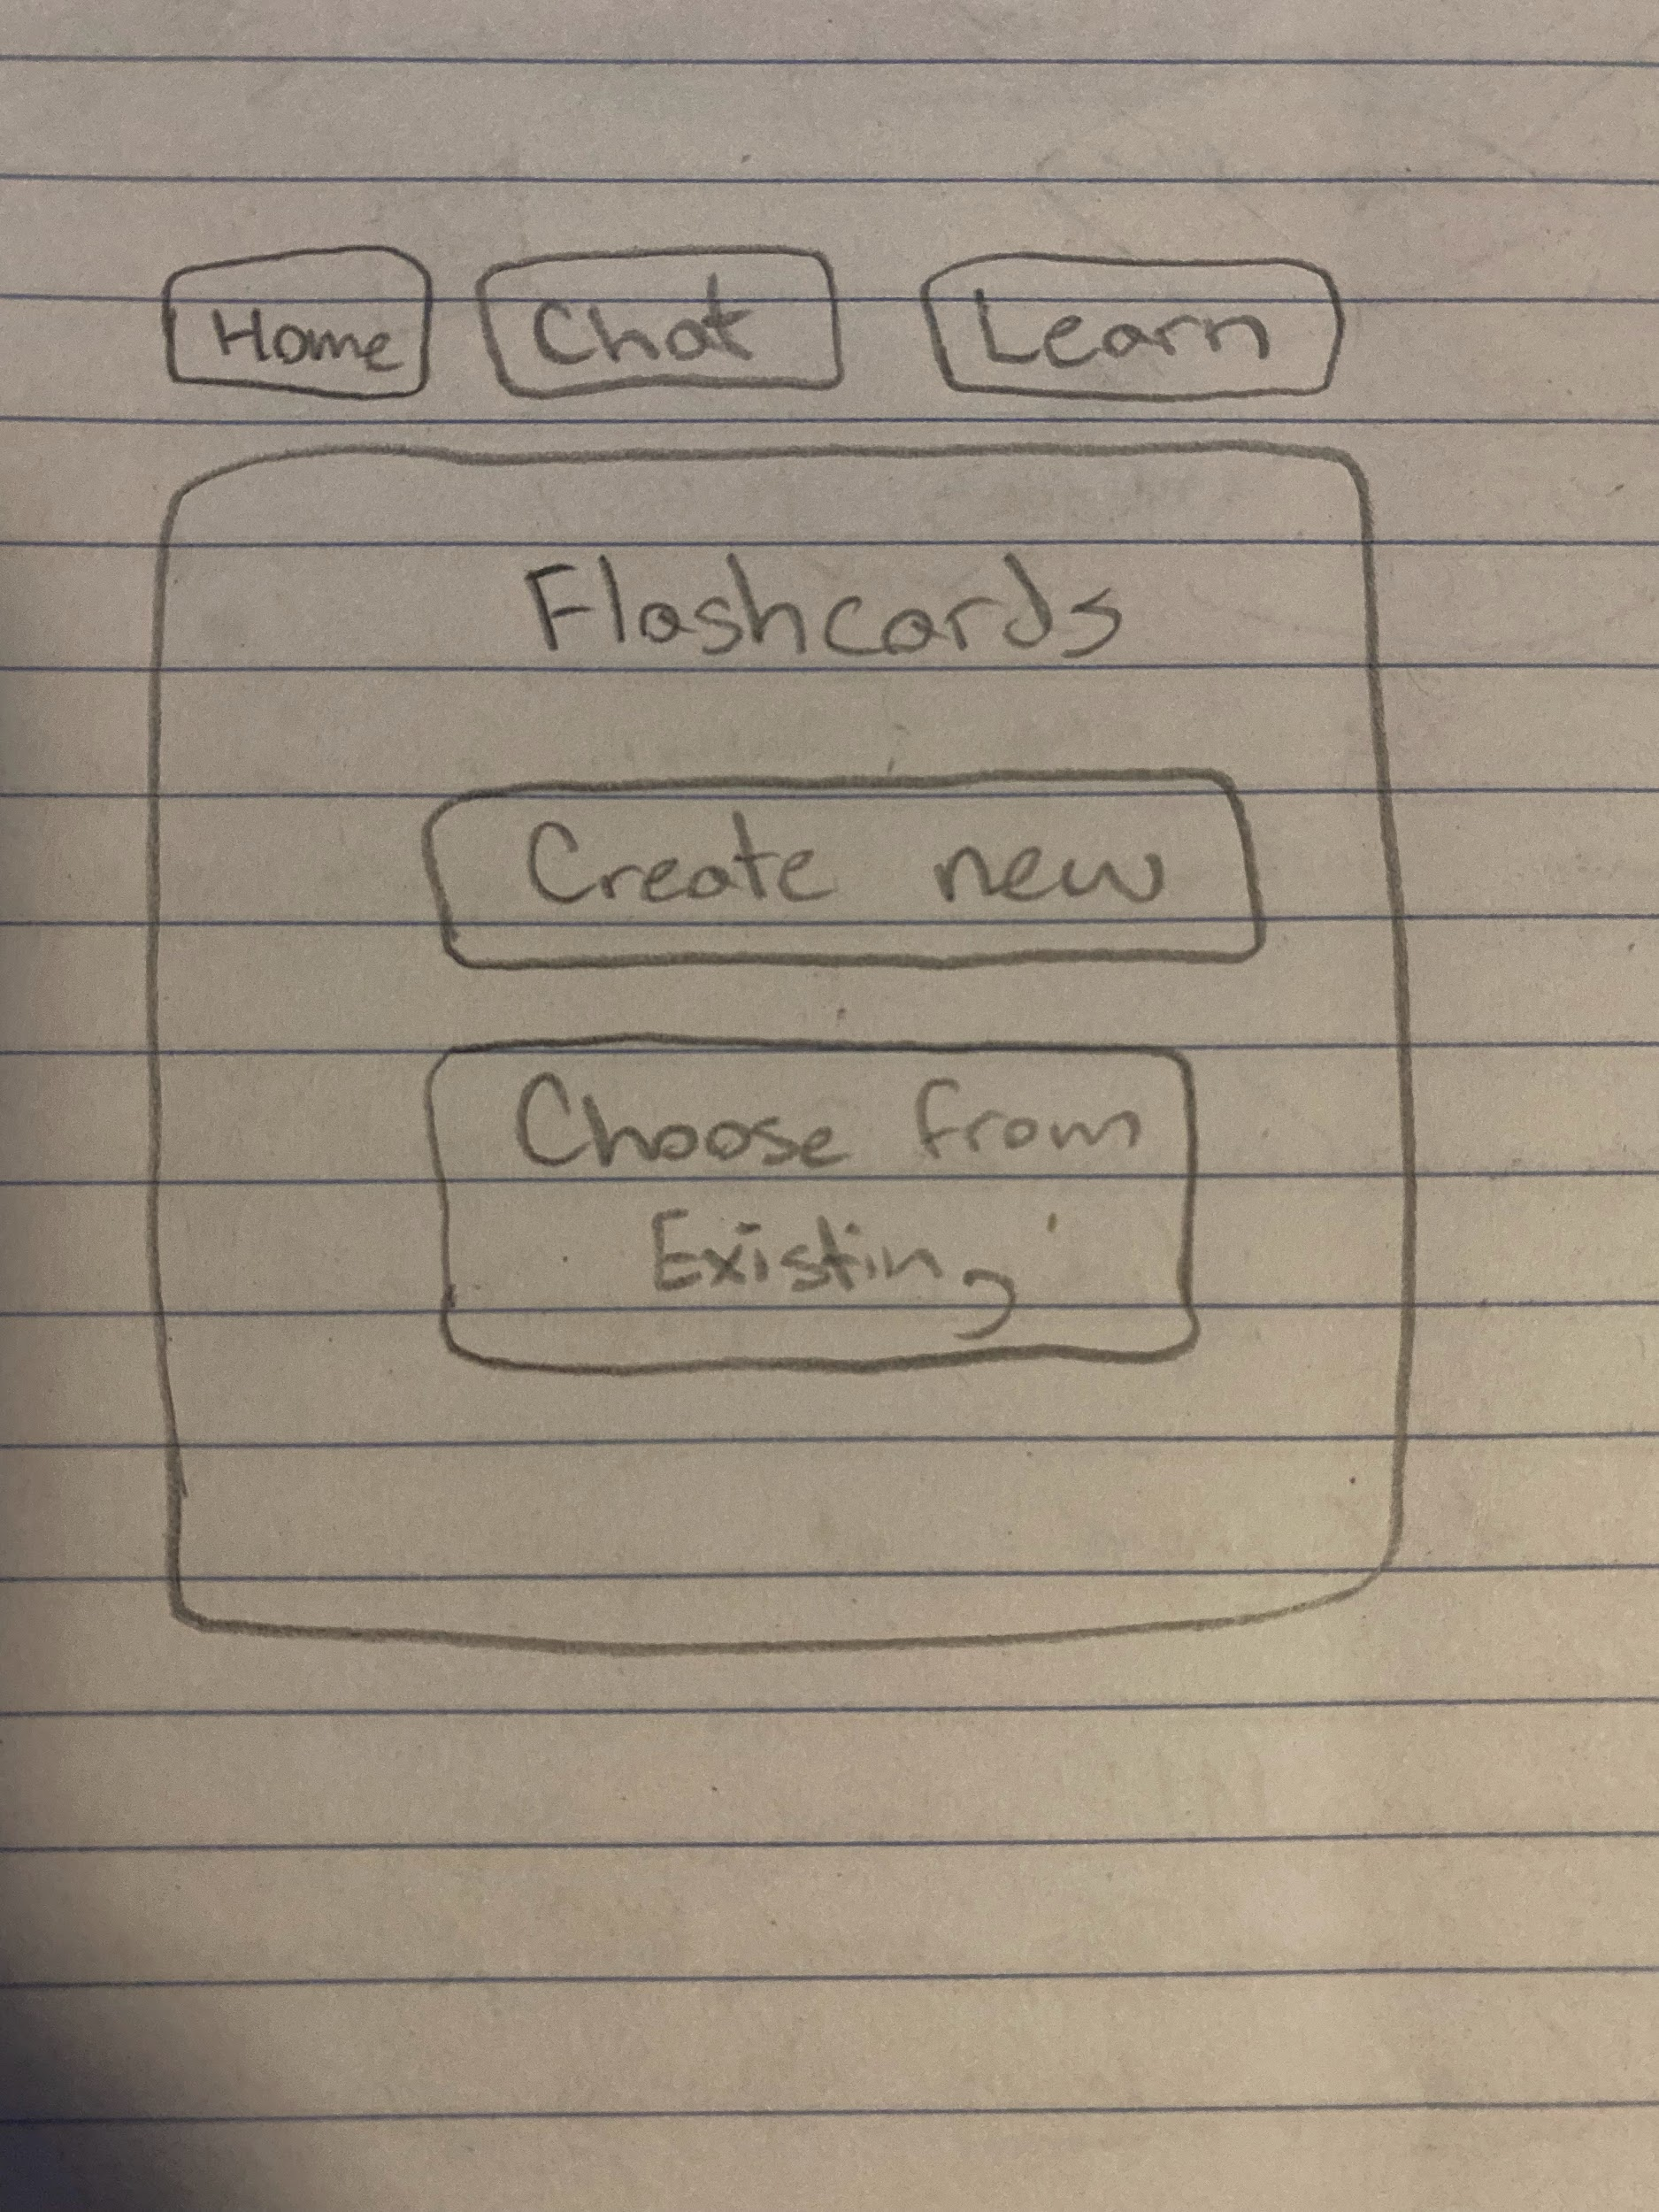 Home Chat Learn
Flashcards
Create new
Choose from
Existing